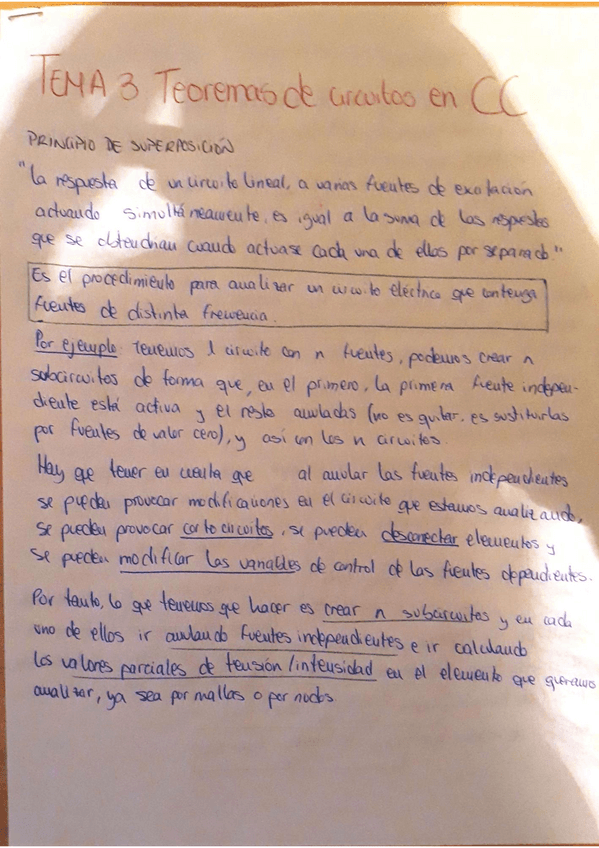 TEMA 3 Teoremas de circuitos en CC
PRINCIPIO DE SUPERPOSICIÓN
"La respuesta de un circuito lineal, a varias fuentes de excitación
actuando simultáneamente, es igual a la suma de las respuestas
que se obtendrían cuando actuase cada una de ellas por separado"
Es el procedimiento para analizar un circuito eléctrico que contenga
fuentes de distinta frecuencia.
Por ejemplo: tenemos 1 circuito con n fuentes, podemos crear n
subcircuitos de forma que, en el primero, la primera fuente indepen-
diente está activa y el resto anuladas (no es quitar, es sustituirlas
por fuentes de valor cero), y así con los n circuitos.
Hay que tener en cuenta que al anular las fuentes independientes
se pueden provocar modificaciones en el circuito que estamos analizando,
se pueden provocar cortocircuitos, se pueden desconectar elementos y
se pueden modificar las variables de control de las fuentes dependientes.
Por tanto, lo que tenemos que hacer es crear n subcircuitos y en cada
uno de ellos ir anulando fuentes independientes e ir calculando
los valores parciales de tensión/intensidad en el elemento que queramos
analizar, ya sea por mallas o por nudos